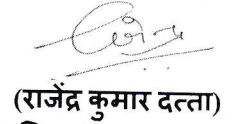 (राजेंद्र कुमार दत्ता)